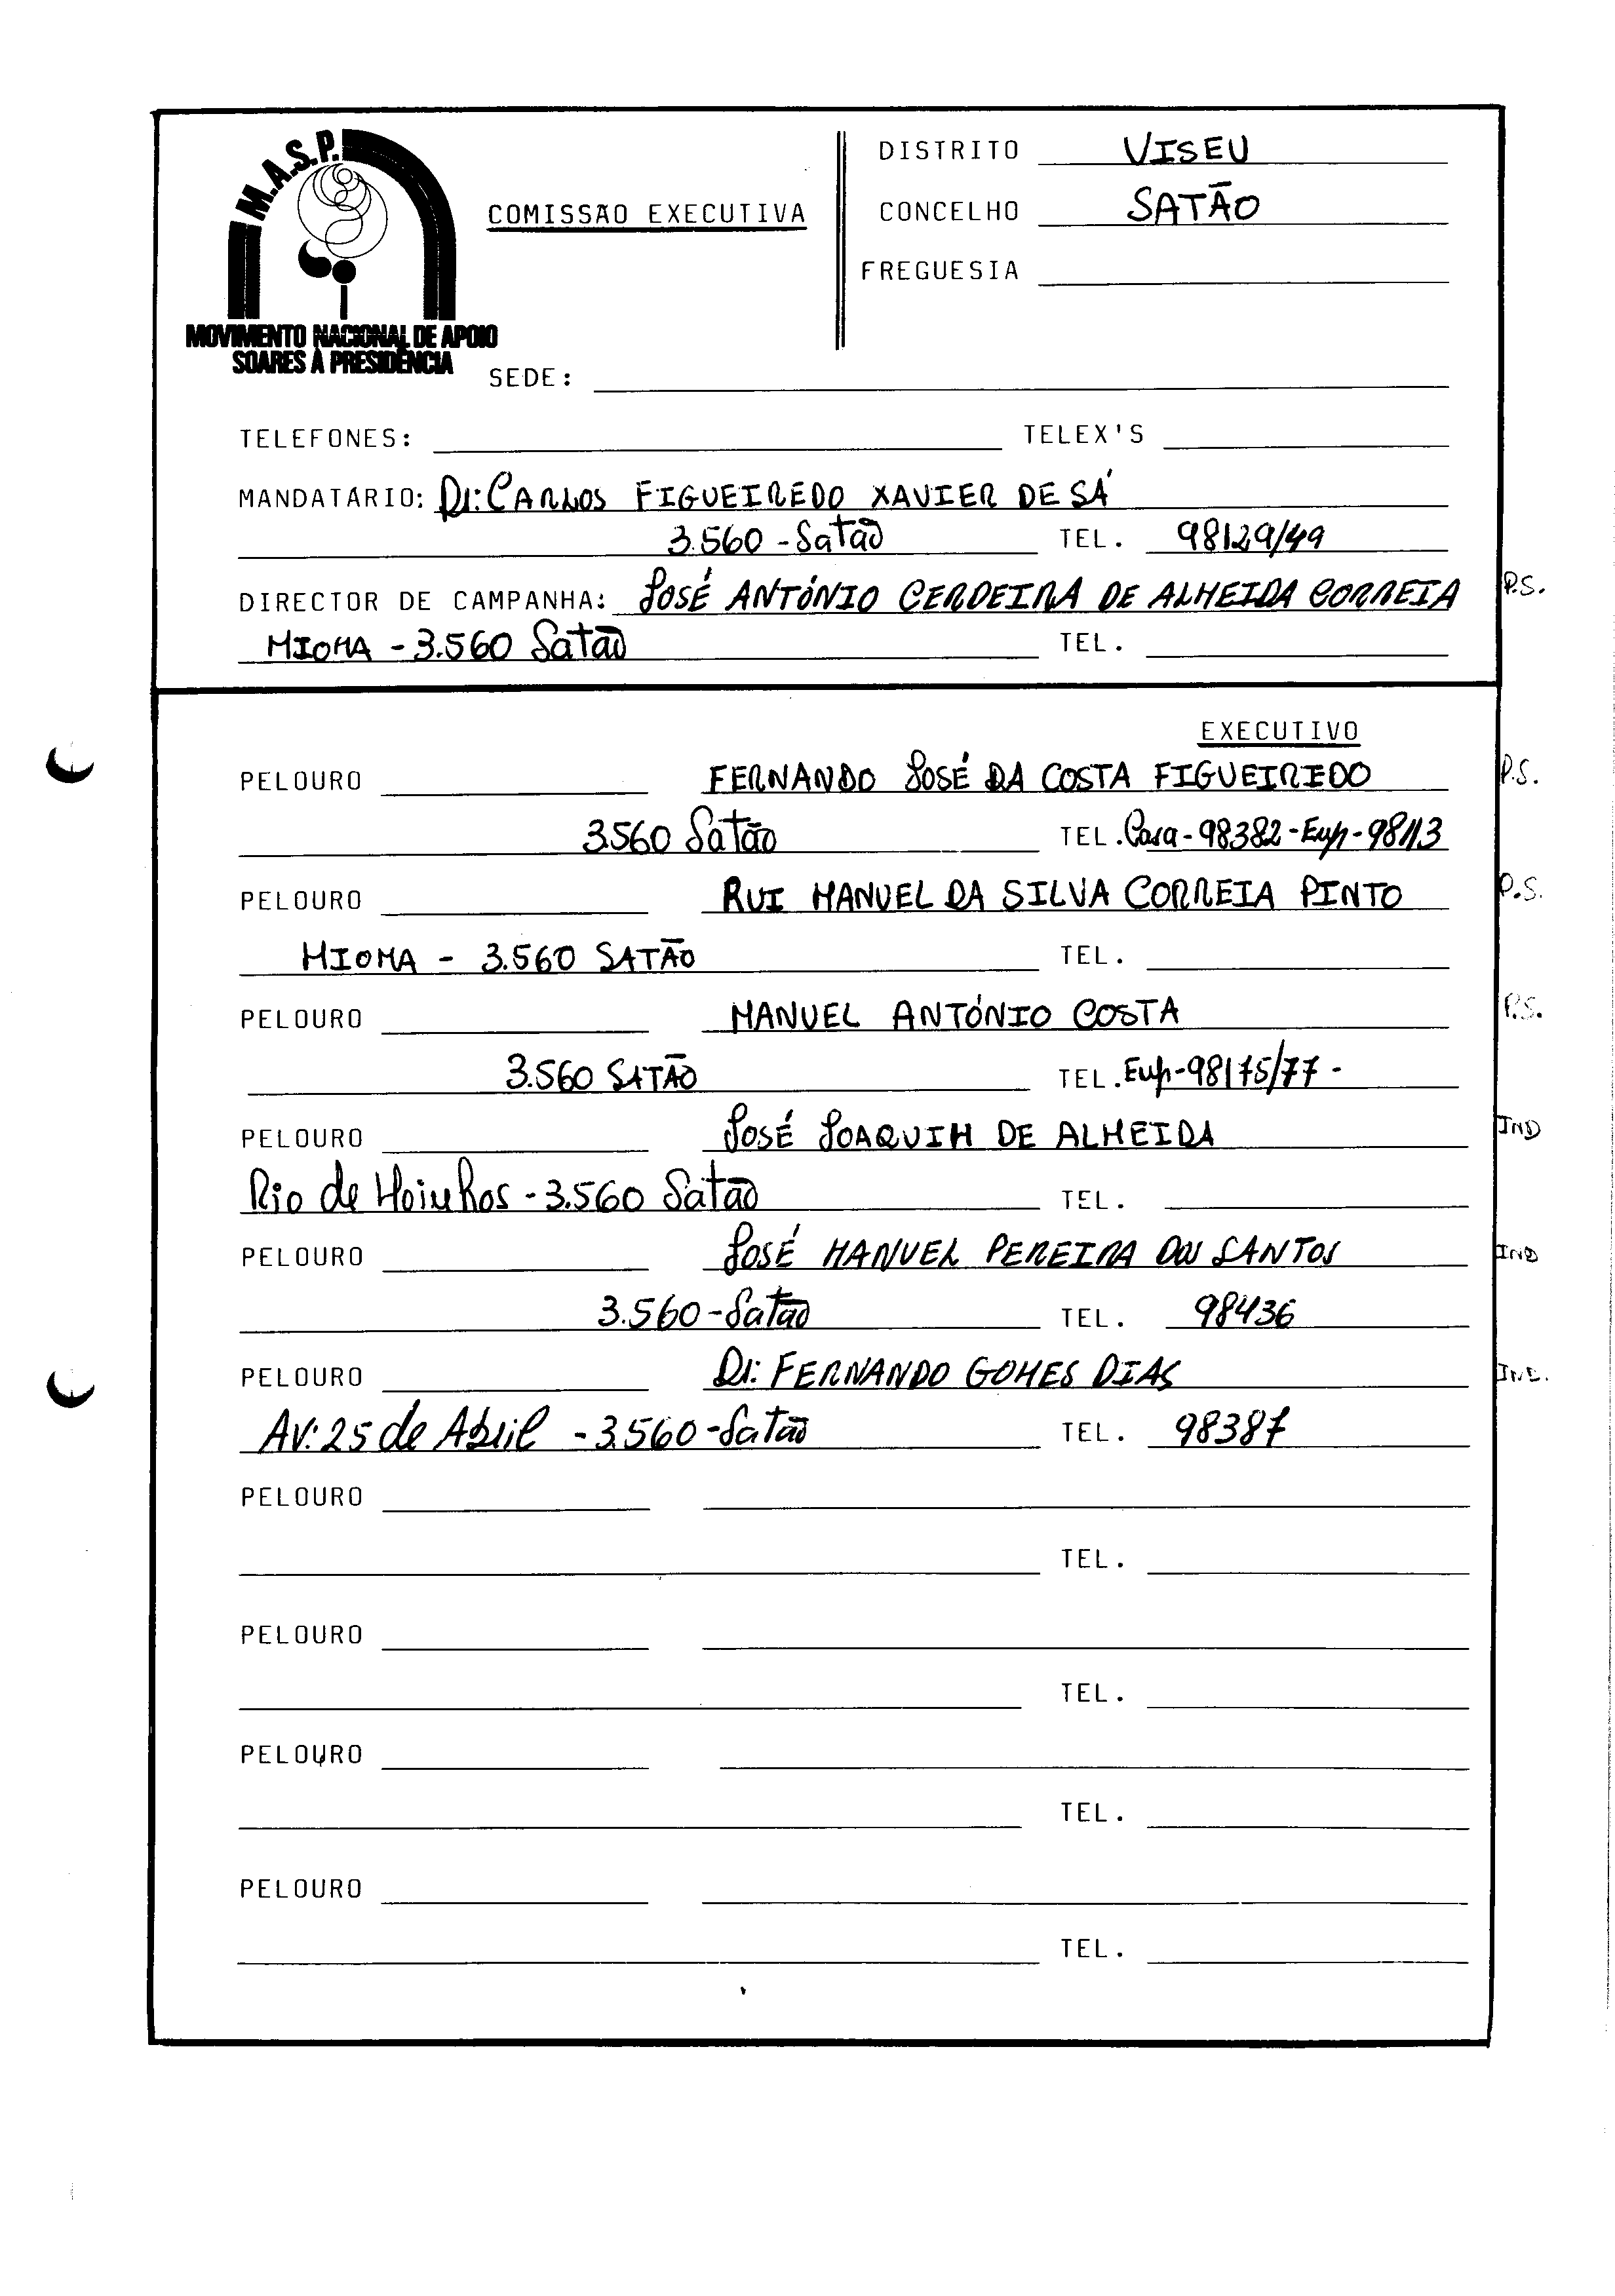 M.A.S.P.
MOVIMENTO NACIONAL DE APOIO
SOARES À PRESIDÊNCIA
COMISSÃO EXECUTIVA
DISTRITO VISEU
CONCELHO SATÃO
FREGUESIA
SEDE:
TELEFONES: TELEX'S
MANDATÁRIO: Dr: CARLOS FIGUEIREDO XAVIER DE SÁ
3.560 - Satão TEL. 98129/49
DIRECTOR DE CAMPANHA: JOSÉ ANTÓNIO CERDEIRA DE ALMEIDA CORREIA P.S.
MIOMA - 3.560 Satão TEL.
EXECUTIVO
PELOURO FERNANDO JOSÉ DA COSTA FIGUEIREDO P.S.
3.560 Satão TEL. Casa - 98382 - Emp - 98113
PELOURO RUI MANUEL DA SILVA CORREIA PINTO P.S.
MIOMA - 3.560 SATÃO TEL.
PELOURO MANUEL ANTÓNIO COSTA P.S.
3.560 SATÃO TEL. Emp - 98175/77 -
PELOURO JOSÉ JOAQUIM DE ALMEIDA IND
Rio de Moinhos - 3.560 Satão TEL.
PELOURO JOSÉ MANUEL PEREIRA DOS SANTOS IND
3.560 - Satão TEL. 98436
PELOURO Dr: FERNANDO GOMES DIAS IND.
Av: 25 de Abril - 3.560 - Satão TEL. 98387
PELOURO
TEL.
PELOURO
TEL.
PELOURO
TEL.
PELOURO
TEL.